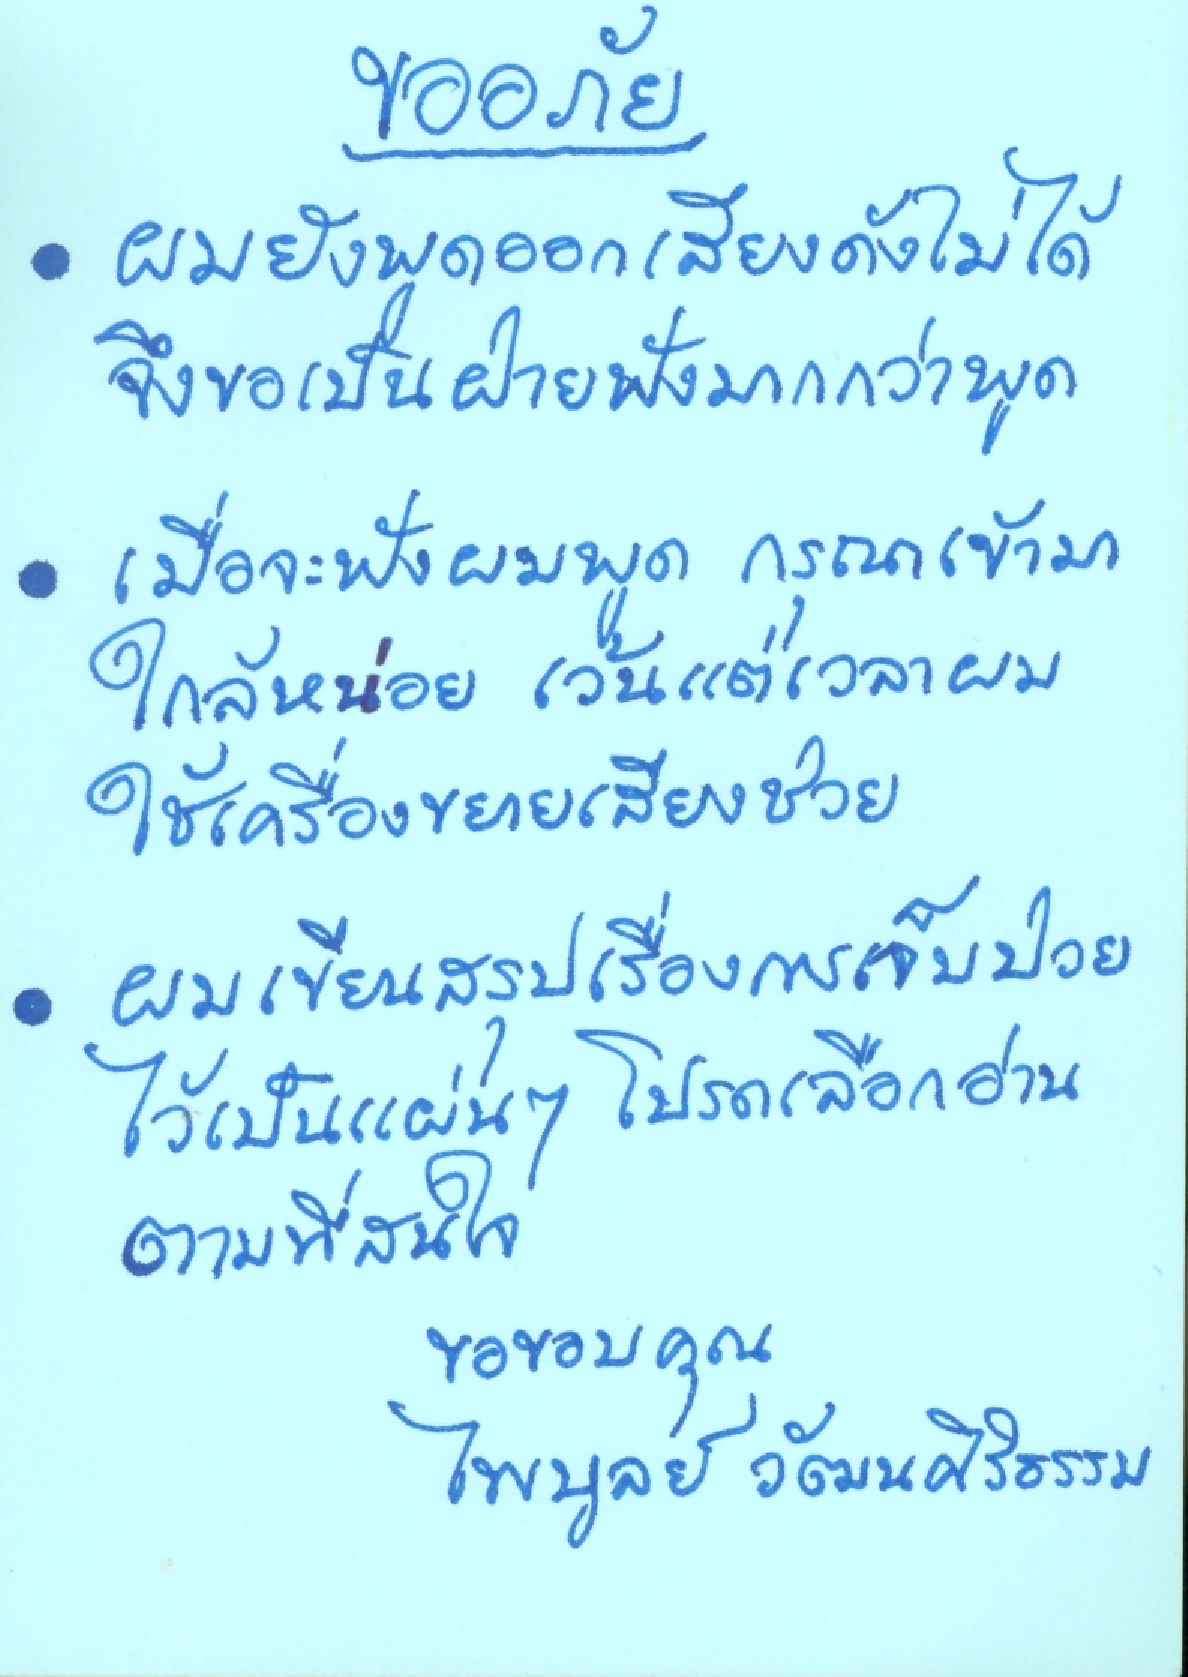 ขออภัย
• ผมยังพูดออกเสียงดังไม่ได้
จึงขอเป็นฝ่ายฟังมากกว่าพูด
• เมื่อจะฟังผมพูด กรุณาเข้ามา
ใกล้หน่อย เว้นแต่เวลาผม
ใช้เครื่องขยายเสียงช่วย
• ผมเขียนสรุปเรื่องการเจ็บป่วย
ไว้เป็นแผ่นๆ โปรดเลือกอ่าน
ตามที่สนใจ
ขอขอบคุณ
ไพบูลย์ วัฒนศิริธรรม